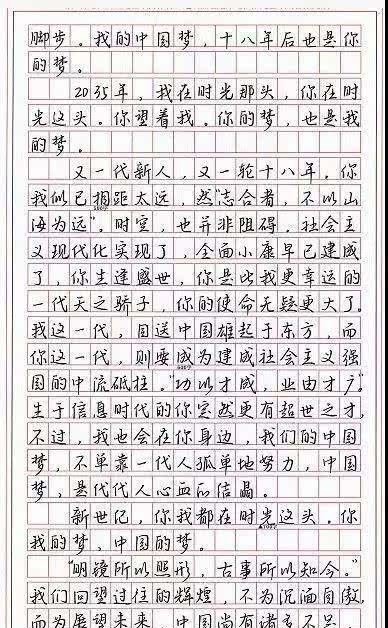 脚步。我的中国梦，十八年后也是你
的梦。
2035年，我在时光那头，你在时
光这头。你望着我。你的梦，也是我
的梦。
又一代新人，又一轮十八年。你
我似已相距太远，然“志合者，不以山
海为远”。时空，也并非阻碍。社会主
义现代化实现了，全面小康早已建成
了，你生逢盛世，你是比我更幸运的
一代天之骄子，你的使命无疑更大了。
我这一代，目送中国雄起于东方，而
你这一代，则要成为建成社会主义强
国的中流砥柱。“功以才成，业由才广”。
生于信息时代的你突然更有超世之才，
不过，我也会在你身边，我们的中国
梦，不单靠一代人孤单地努力，中国
梦，是代代人心血的结晶。
新世纪，你我都在时光这头。你
我的梦，中国的梦。
“明镜所以照形，古事所以知今。”
我们回望过往的辉煌，不为沉湎自傲，
而为展望未来，中国尚有诸多不足，